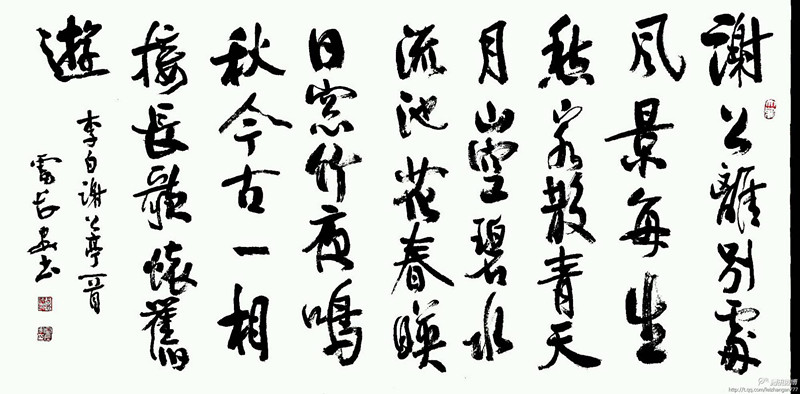 謝公離別處
風景每生
愁客散青天
月山空碧水
流池花春映
日窓竹夜鳴
秋今古一相
接長歌懷舊
遊
李白謝公亭一首
雷长安书
腾讯微博